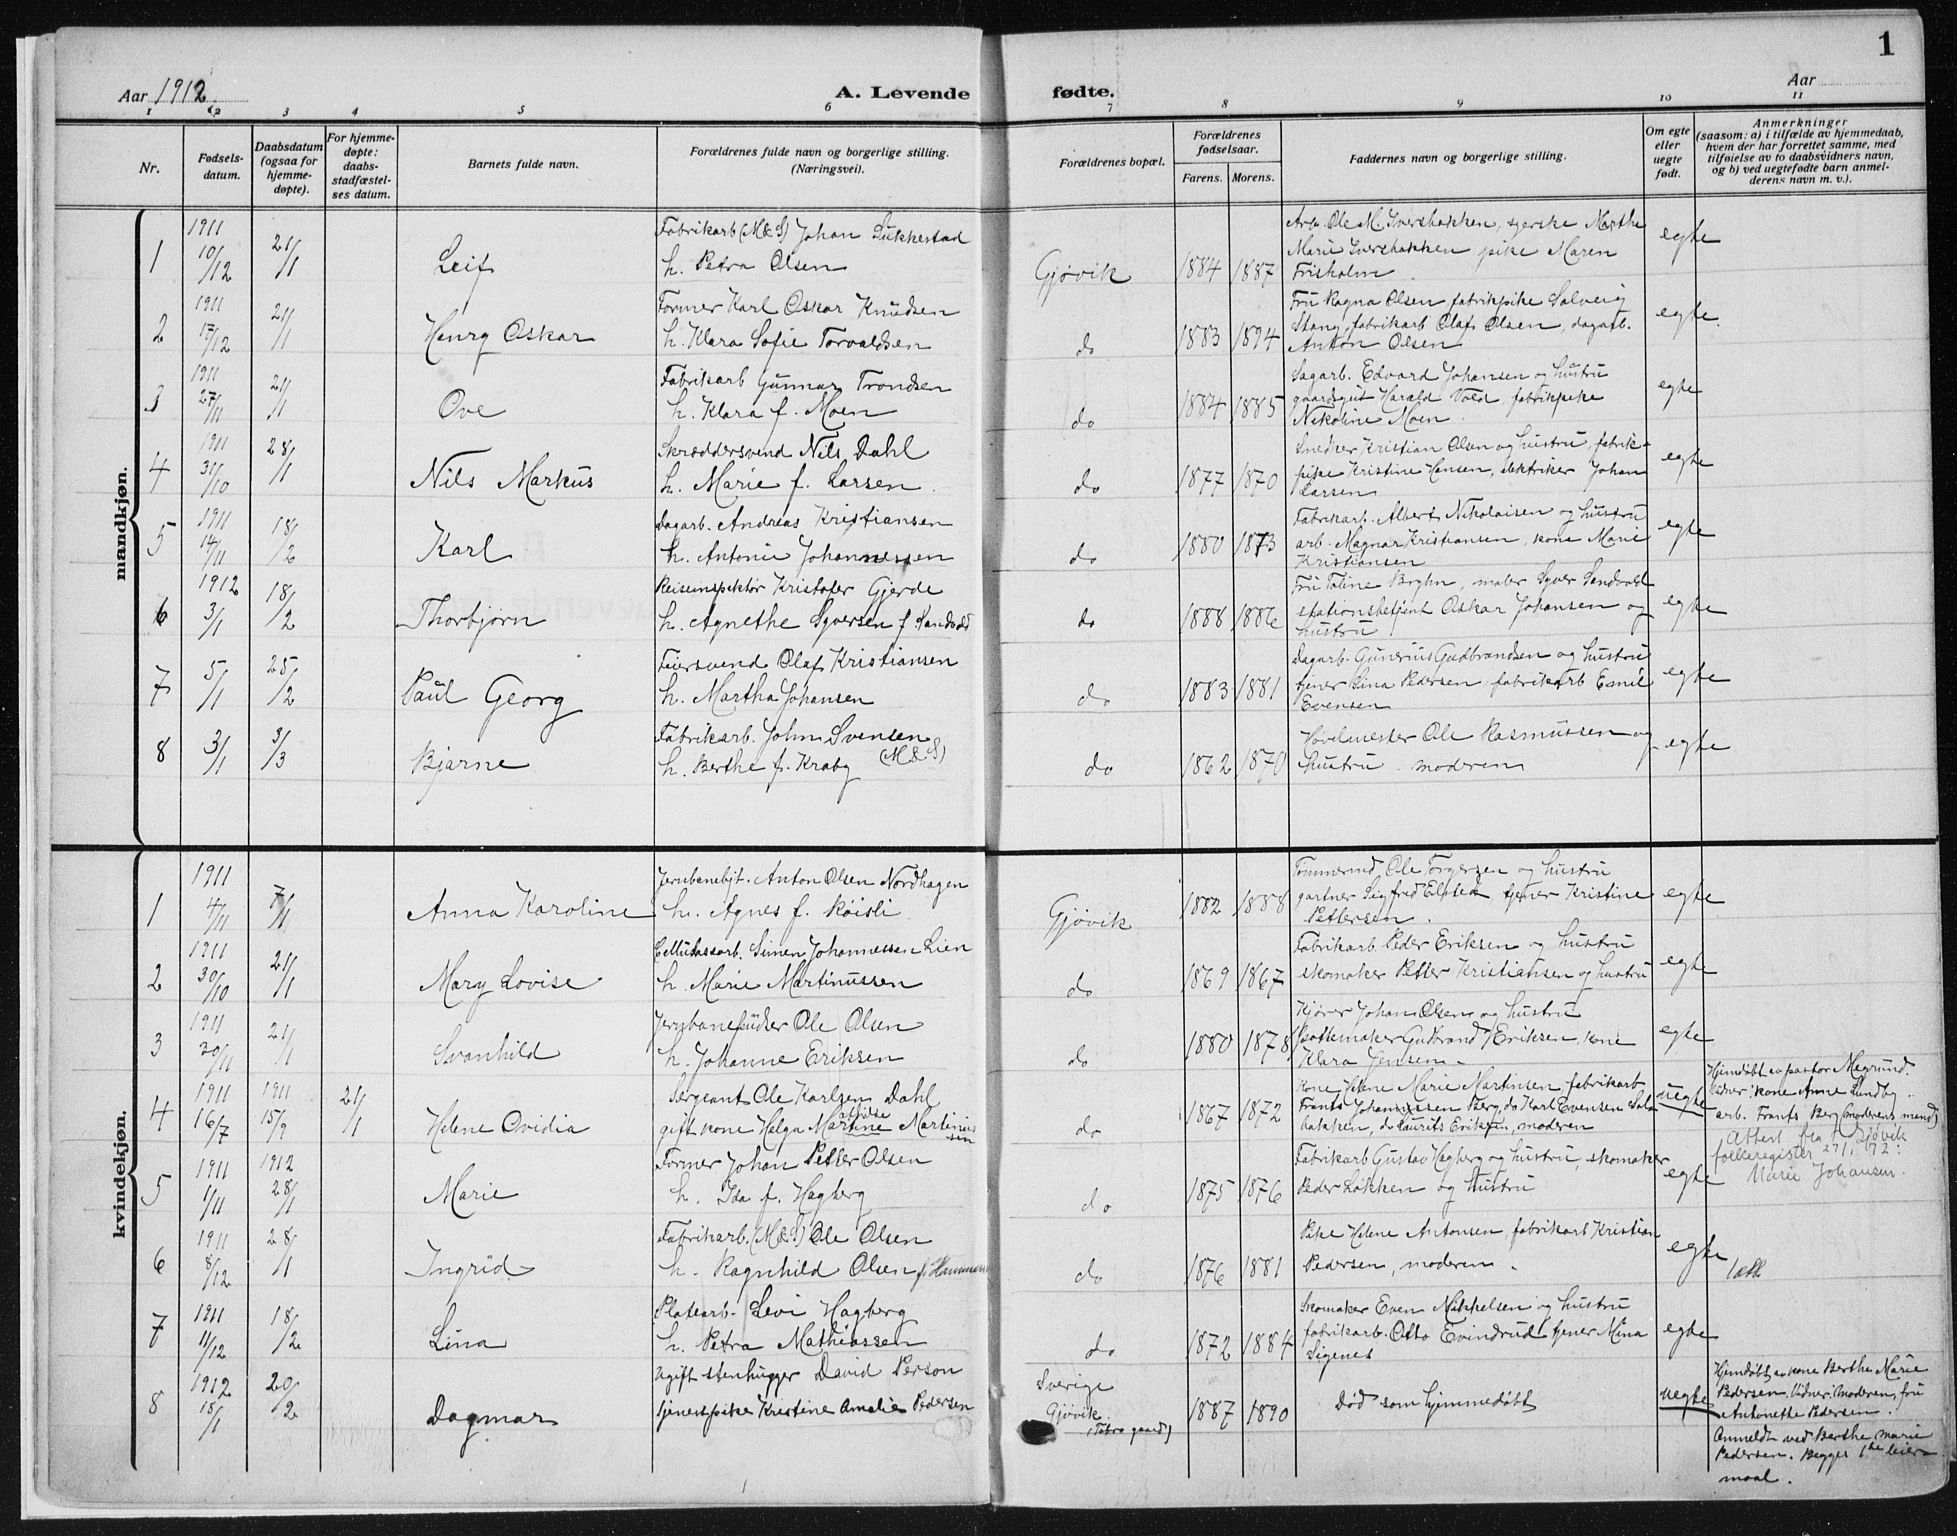 1
Aar 1912.
A. Levende fødte.
Aar
1 2 3 4 5 6 7 8 9 10 11
Nr.
Fødsels-
datum.
Daabsdatum
(ogsaa for
hjemme-
døpte).
For hjemme-
døpte:
daabs-
stadfæstel-
ses datum.
Barnets fulde navn.
Forældrenes fulde navn og borgerlige stilling.
(Næringsvei).
Forældrenes bopæl.
Forældrenes
fødselsaar.
Farens. Morens.
Faddernes navn og borgerlige stilling.
Om egte
eller
uegte
født.
Anmerkninger
(saasom: a) i tilfælde av hjemmedaab,
hvem der har forrettet samme, med
tilføielse av to daabsvidners navn,
og b) ved uegtefødte barn anmel-
derens navn m. v.).
mandkjøn.
1 1911 10/12 21/1 Leif
Fabrikarb (M&S) Johan Lukkestad
h. Petra Olsen
Gjøvik 1884 1887
Arb. Ole M. Svershakken, syerske Marthe
Marie Svershakken pike Maren
Frisholm
egte
2 1911 17/12 21/1 Henry Oskar
Former Karl Oskar Knudsen
h. Klara Sofie Torvaldsen
do 1883 1894
Fru Ragna Olsen fabrikpike Solveig
Stang, fabrikarb Olaf Olsen, dagarb.
Anton Olsen
egte.
3 1911 27/11 21/1 Ove
Fabrikarb Gunnar Trondsen
h. Klara f. Moen
do 1884 1885
Sagarb. Edvard Johansen og hustru
gaardsgut Harald Vold fabrikpike
Nikoline Moen
egte
4 1911 31/10 28/1 Nils Markus
Skræddersvend Nils Dahl
h. Marie f. Larsen
do 1877 1870
Snedker Kristian Olsen og hustru, fabrik-
pike Kristine Hansen, elektriker Johan
Larsen
egte
5 1911 14/11 18/2 Karl
Dagarb. Andreas Kristiansen
h. Antonie Johannessen
do 1880 1873
Fabrikarb. Albert Nikolaisen og hustru
arb. Magnar Kristiansen, kone Marie
Kristiansen
egte
6 1912 3/1 18/2 Thorbjørn
Reiseinspektør Kristofer Gjerde
h. Agnethe Syversen f. Sandvold
do 1888 1886
Fru Toline Bryhn, maler Syver Sandvold
stationsbetjent Oskar Johansen og
hustru
egte
7 5/1 25/2 Paul Georg
Feiersvend Olaf Kristiansen
h. Martha Johansen
do 1883 1881
Dagarb. Gunerius Gudbrandsen og hustru
tjener Lina Pedersen, fabrikarb Emil
Evensen
egte
8 3/1 3/3 Bjarne
Fabrikarb. John Svensen
h. Berthe f. Kraby (M&S)
do 1862 1870
Høvelmester Ole Rasmussen og
hustru. moderen
egte
kvindekjøn.
1 1911 4/11 7/1 Anna Karoline
Jernbanebjt. Anton Olsen Nordhagen
h. Agnes f. Røisli
Gjøvik 1882 1888
Tømmermd. Ole Torgersen og hustru
gartner Sigfred Elsted tjener Kristine
Pettersen.
egte
2 1911 30/10 21/1 Mary Lovise
Cellulosearb. Simen Johannessen Lien
h. Marie Martinussen
do 1869 1867
Fabrikarb Peder Eriksen og hustru
skomaker Petter Kristiansen og hustru
egte
3 1911 30/11 21/1 Svanhild
Jernbanepudser Ole Olsen
h. Johanne Eriksen
do 1880 1878
Kjører Johan Olsen og hustru
pottemaker Gudbrand Eriksen, kone
Klara Jensen.
egte
4 1911 16/7 1911 15/9 21/1 Helene Ovidia
Sergeant Ole Karlsen Dahl
gift kone Helga Mathilde Martine Martinius
sen
do 1867 1872
Kone Helene Marie Martinsen, fabrikarb
Frants Johannessen Berg, do Karl Evensen Sola
bakken, do Laurits Eriksen, moderen
uegte
Hjemdøbt av pastor Negrund.
Vidner: kone Anne Lundby
arb. Frants Berg (moderens mand)
Attest fra Gjøvik
folkeregister 27/1 1972:
Marie Johansen.
5 1911 1/11 1912 28/1 Marie
Former Johan Petter Olsen
h. Ida f. Hagberg
do 1875 1876
Fabrikarb Gustav Hagberg og hustru, skomaker
Peder Løkken og hustru
egte
6 1911 8/12 28/1 Ingrid
Fabrikarb. (M&S) Ole Olsen
h. Ragnhild Olsen f. Hammern
do 1876 1881
Pike Helene Antonsen, fabrikarb Kristian
Pedersen, moderen.
egte
7 1911 11/12 18/2 Lina
Platearb. Levi Hagberg
h. Petra Mathiassen
do 1872 1884
Skomaker Even Mikkelsen og hustru
fabrikarb. Otto Evindrud tjener Mina
Sigenes
egte
8 1912 18/1 20/2 Dagmar
Ugift stenhugger David Person
tjenestpike Kristine Amalie Pedersen
Sverige
Gjøvik
(Tobro gaard)
1887 1890
Død som hjemmedøbt
uegte
Hjemdøbt av kone Berthe Marie
Pedersen. Vidner: moderen, fru
Antonethe Pedersen.
Anmeldt ved Berthe Marie
Pedersen. Begges 1ste leier-
maal.